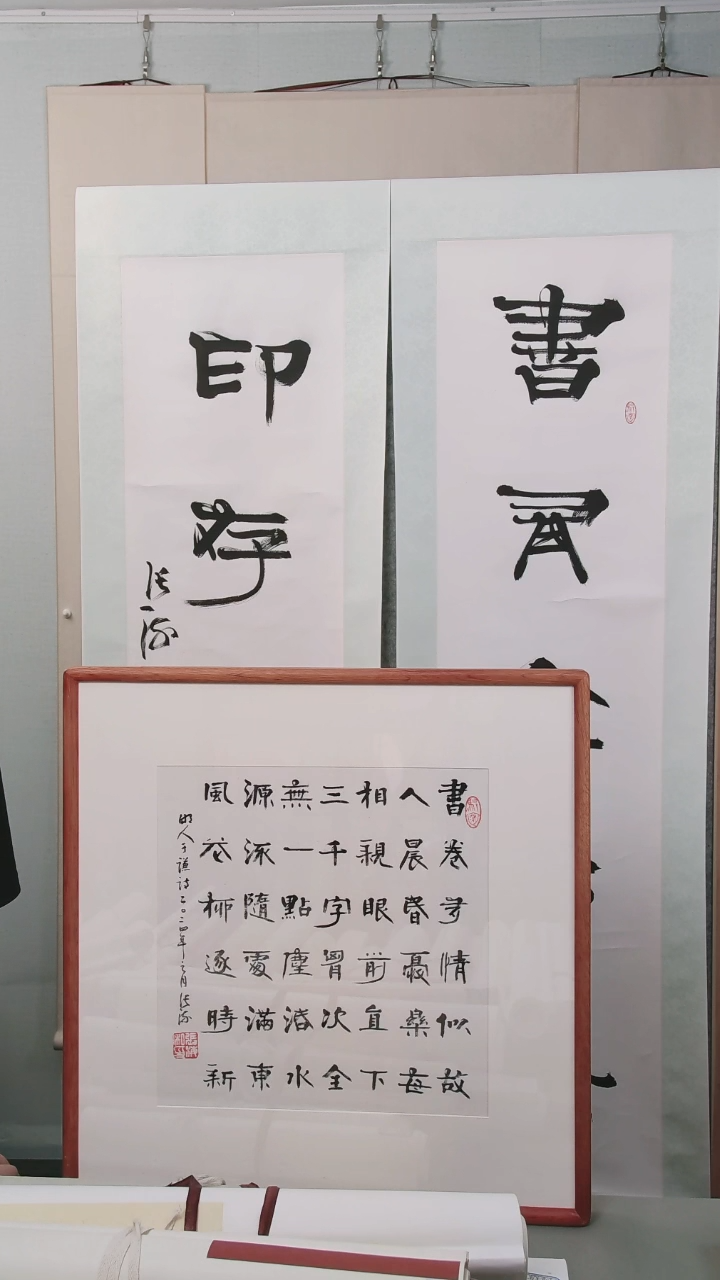 書
印存
書卷多情似故
人晨昏憂樂每
相親眼前直下
三千字胷次全
無一點塵活水
源流隨處滿東
風花柳逐時新
明人于謙詩二〇二四年月